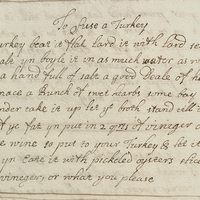 To sfuse a Turkey
urkey beat it flat lard it with lard se
alt yn boyle it in as much water as w
a hand full of salt a good Deale of h
mace a Bunch of sweet hearbs some bay
nder take it up let ye both stand till i
f ye fat yn put in 2 qrts of vineger
te wine so put to your Turkey & let it
yn take it with pickeled oysters slice
vineger, or what you please